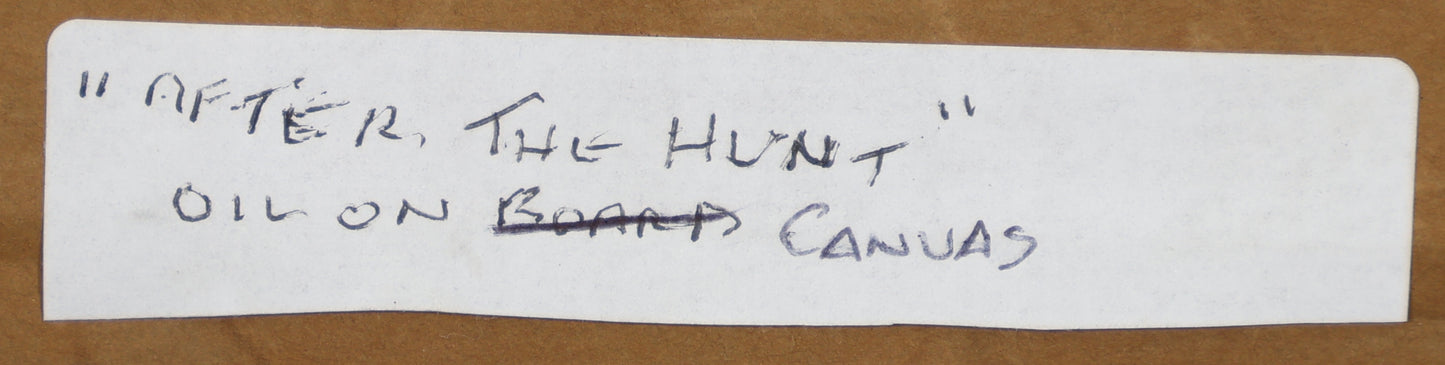 "AFTER, THE HUNT"
OIL ON BOARD CANVAS